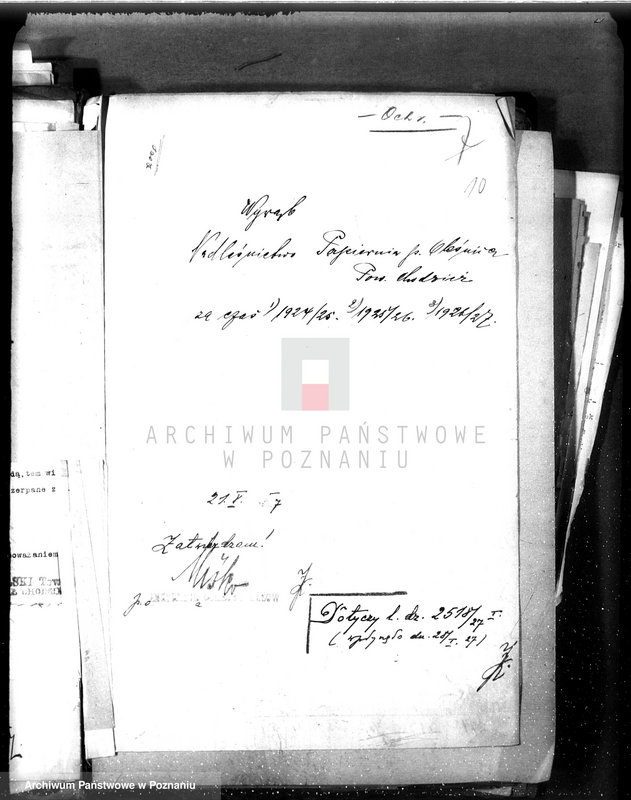 Ochr.
7
10
Wyrąb
Nadleśnictwo Papiernia p. Oleśnica
Pow. Chodzież
za czas 1) 1924/25. 2) 1925/26. 3) 1926/27.
ARCHIWUM PAŃSTWOWE
W POZNANIU
21.V. 7
Zatwierdzam!
Dotyczy l. dz. 2518/27 I
(wpłynęło dn. 28/I. 27)
dą, tem wi
zerpane z
oważaniem
SKI
Archiwum Państwowe w Poznaniu